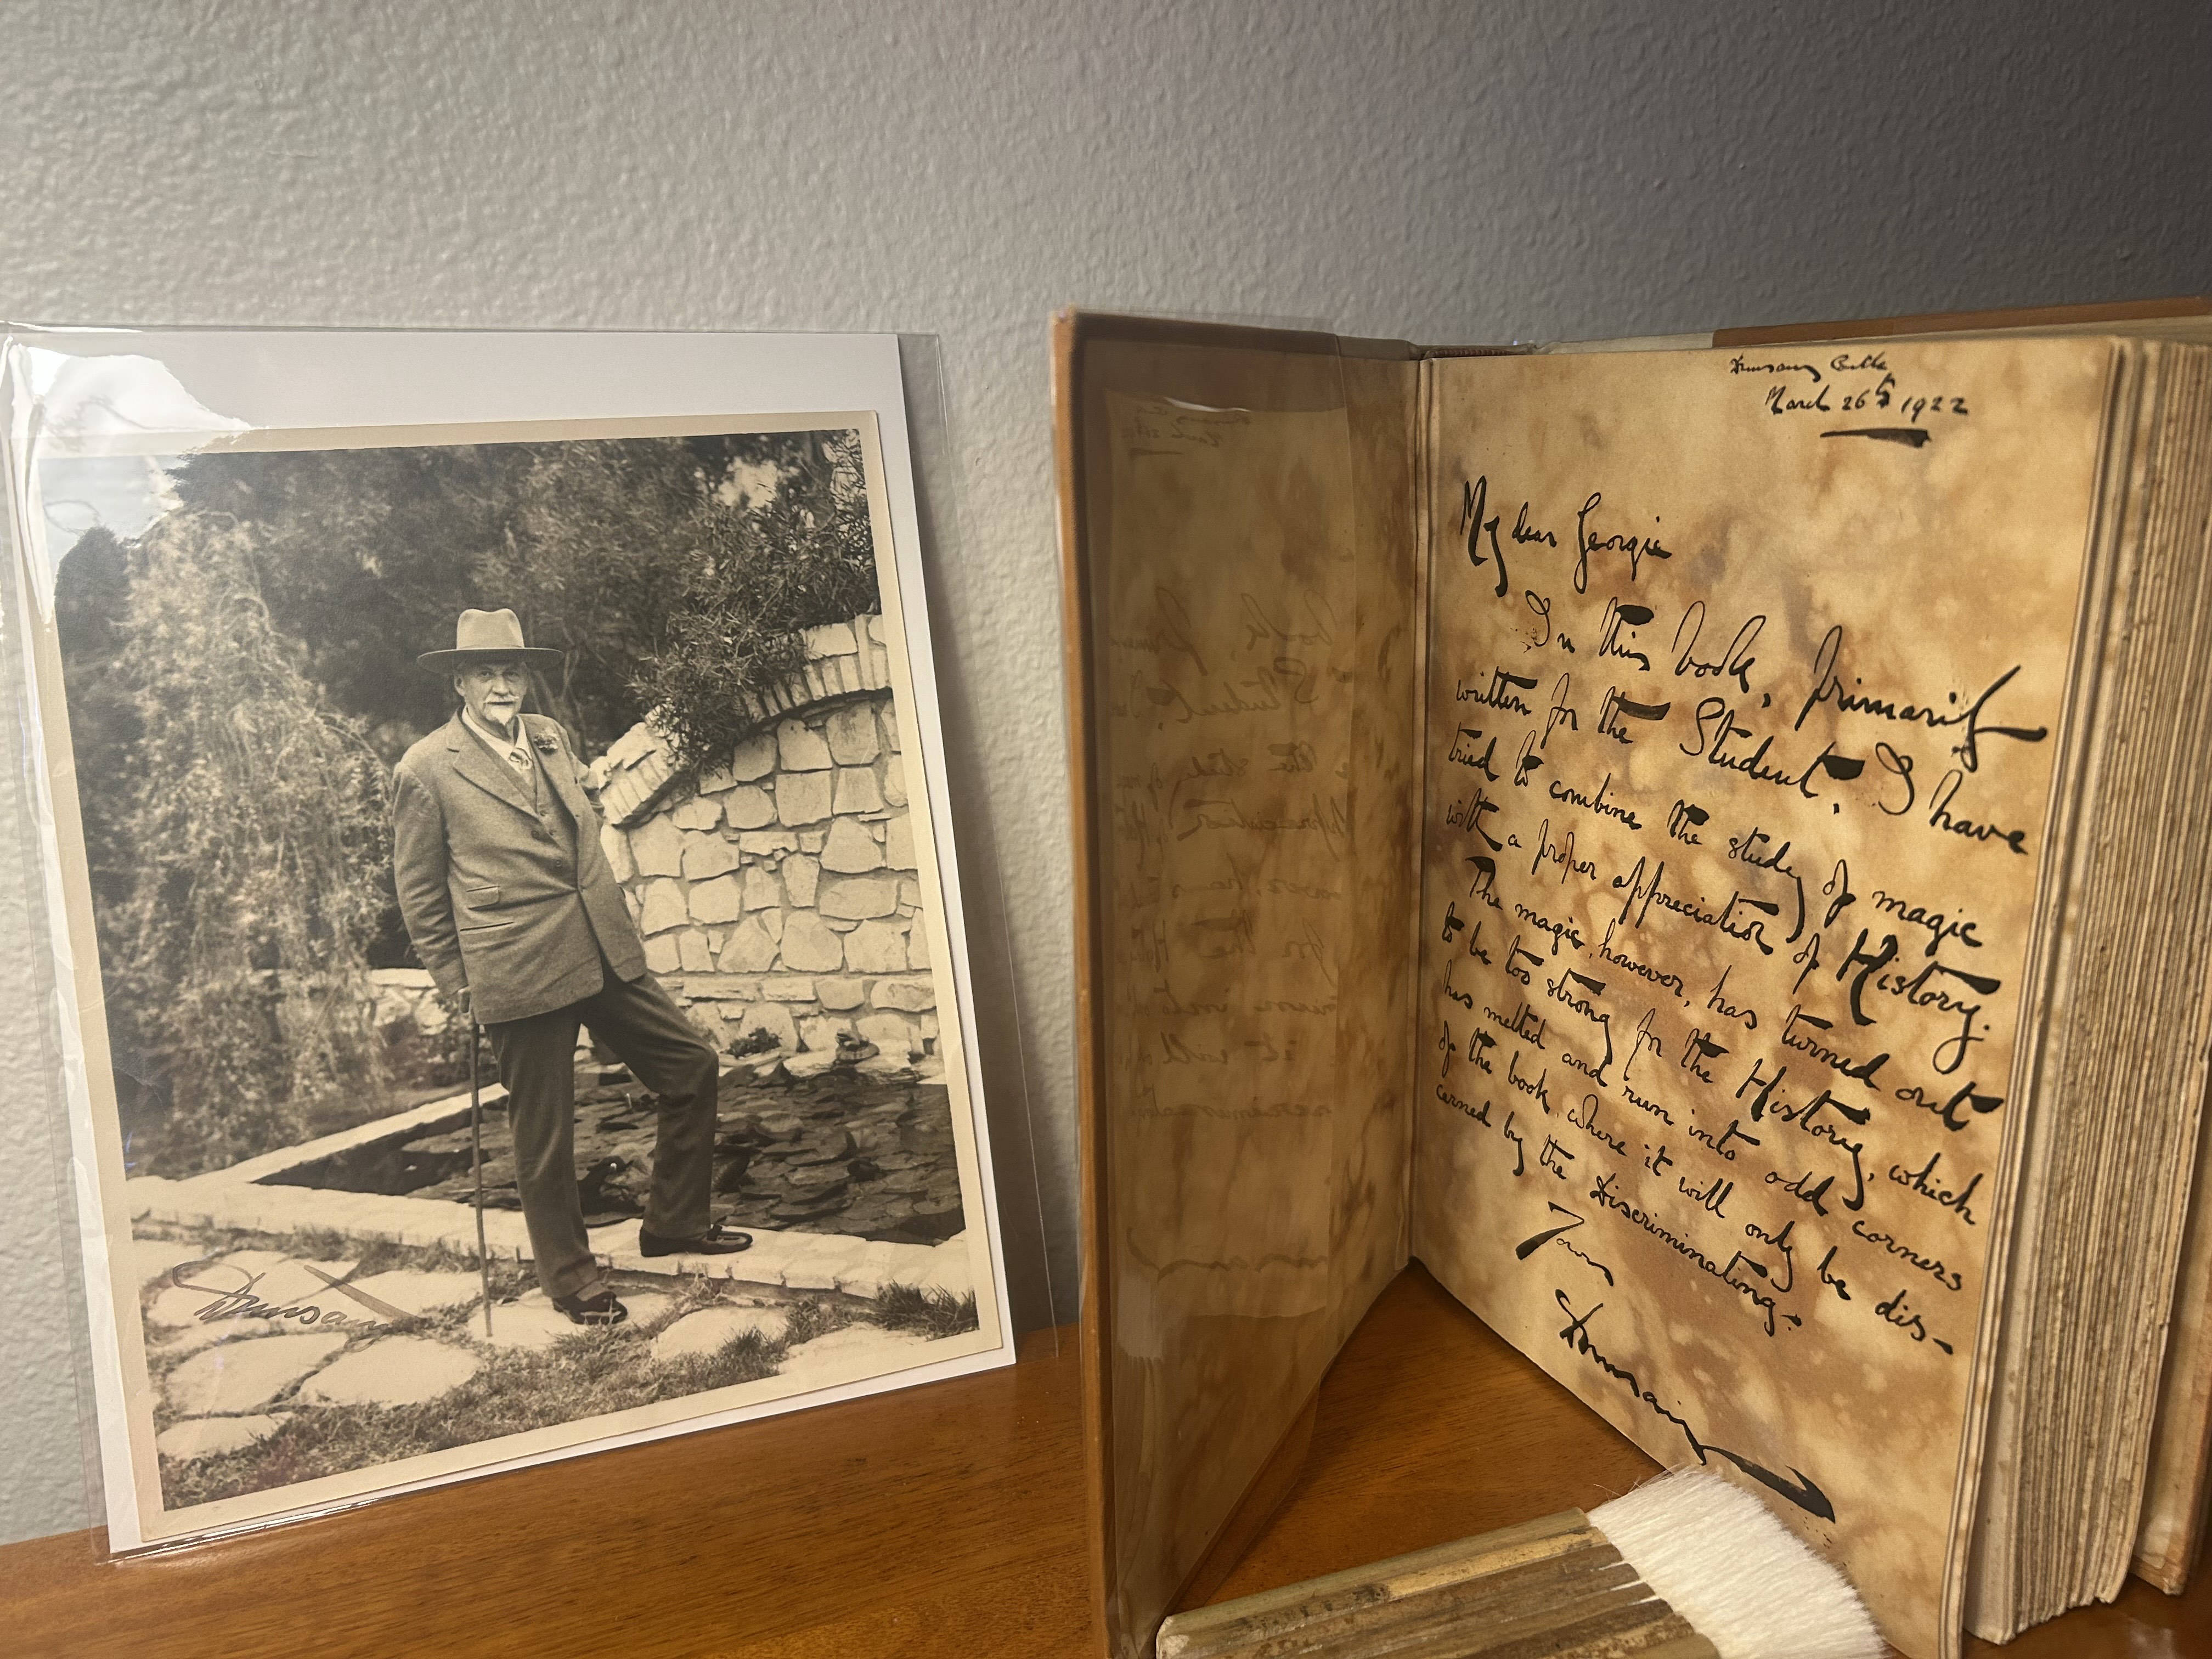 Dunsany
Dunsany Castle
March 26th 1922
My dear Georgie
In this book, primarily
written for the Student, I have
tried to combine the study of magic
with a proper appreciation of History.
The magic, however, has turned out
to be too strong for the History, which
has melted and run into odd corners
of the book, where it will only be dis-
cerned by the Discriminating.
Yours
Dunsany